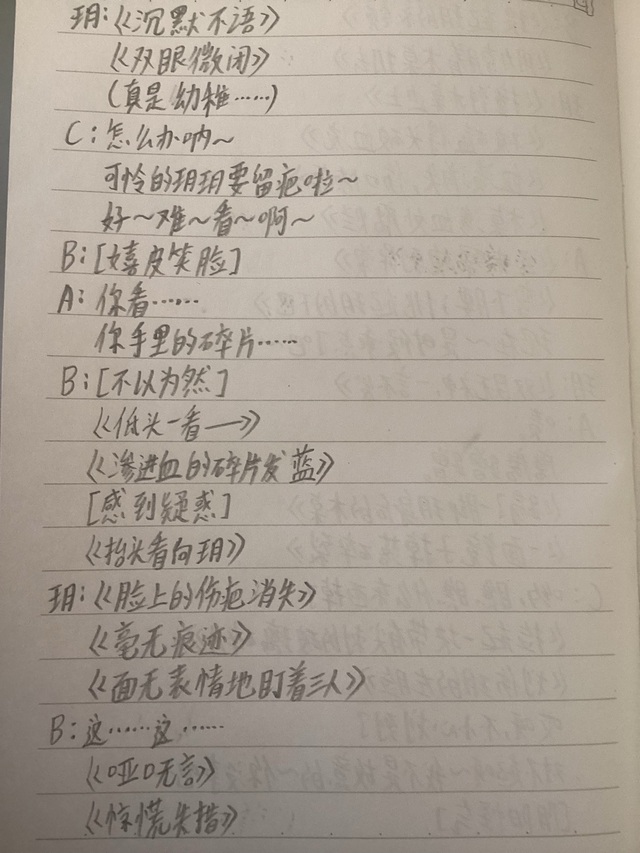 玥:《沉默不语》
《双眼微闭》
(真是幼稚……)
C:怎么办呐~
可怜的玥玥要留疤啦~
好~难~看~啊~
B:[嬉皮笑脸]
A:你看……
你手里的碎片……
B:[不以为然]
《低头一看—》
《渗进血的碎片发蓝》
[感到疑惑]
《抬头看向玥》
玥:《脸上的伤疤消失》
《毫无痕迹》
《面无表情地盯着三人》
B:这……这……
《哑口无言》
《惊慌失措》